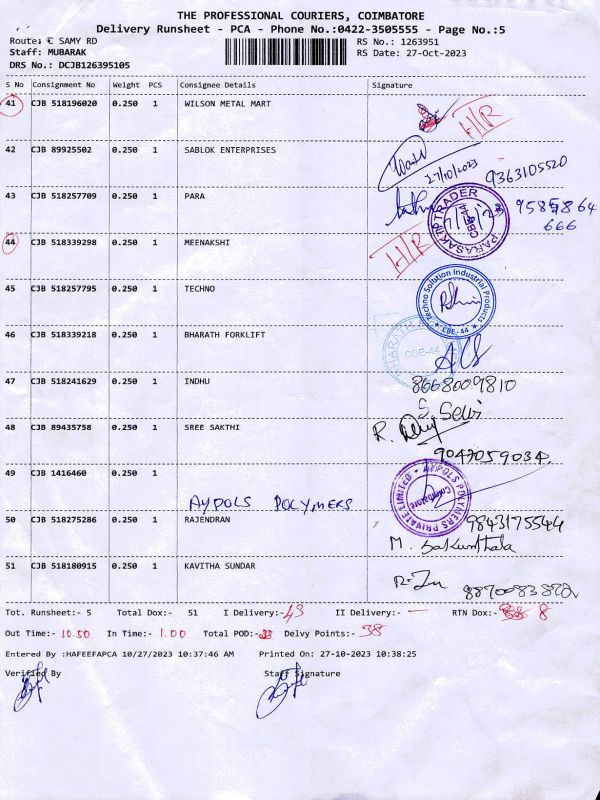 THE PROFESSIONAL COURIERS, COIMBATORE
Delivery Runsheet - PCA - Phone No.:0422-3505555 - Page No.:5
Route: E SAMY RD
RS No.: 1263951
Staff: MUBARAK
RS Date: 27-Oct-2023
DRS No.: DCJB126395105
S No Consignment No Weight PCS Consignee Details Signature
41 CJB 518196020 0.250 1 WILSON METAL MART
H/R
42 CJB 89925502 0.250 1 SABLOK ENTERPRISES
27/10/2023 9363105520
43 CJB 518257709 0.250 1 PARA
PARASAKTI TRADER
CBE-44
666
44 CJB 518339298 0.250 1 MEENAKSHI
H/R
45 CJB 518257795 0.250 1 TECHNO
Techno Solution Industrial Products
CBE-44
46 CJB 518339218 0.250 1 BHARATH FORKLIFT
CBE-44
47 CJB 518241629 0.250 1 INDHU
8668009810
S. Selvi
48 CJB 89435758 0.250 1 SREE SAKTHI
9047059034.
49 CJB 1416460 0.250 1
AYPOLS POLYMERS
AYPOLS POLYMERS PRIVATE LIMITED
Coimbatore
50 CJB 518275286 0.250 1 RAJENDRAN
9843175544
M. Sakunthala
51 CJB 518180915 0.250 1 KAVITHA SUNDAR
Tot. Runsheet:- 5 Total Dox:- 51 I Delivery:- 43 II Delivery:- — RTN Dox:- 8
Out Time:- 10.50 In Time:- 1.00 Total POD:- Delvy Points:- 38
Entered By :HAFEEFAPCA 10/27/2023 10:37:46 AM Printed On: 27-10-2023 10:38:25
Verified By Staff Signature